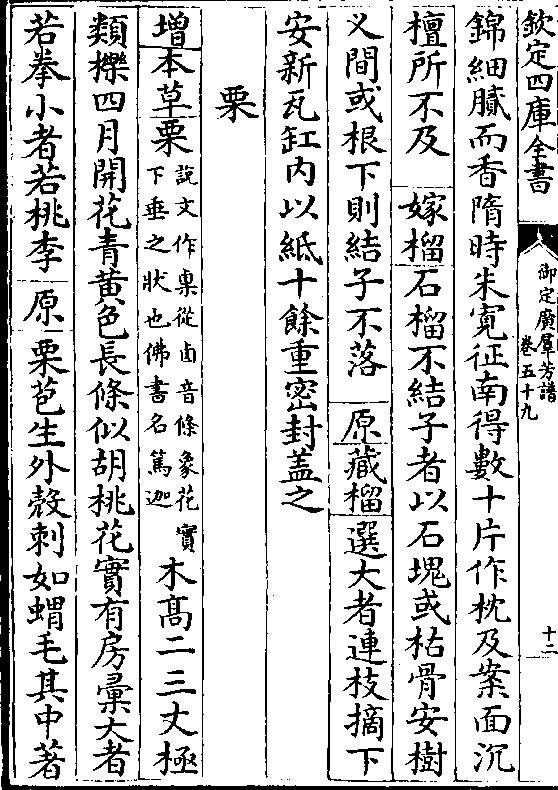 欽定四庫全書
御定廣羣芳譜
卷五十九
十二
錦細膩而香隋時朱寛征南得數十片作枕及案面沉
檀所不及　嫁榴石榴不結子者以石塊或枯骨安樹
乂間或根下則結子不落　原藏榴選大者連枝摘下
安新瓦缸内以紙十餘重密封蓋之
栗
增本草栗說文作㮚從卤音條象花實下垂之狀也佛書名篤迦木高二三丈極
類櫟四月開花青黃色長條似胡桃花實有房彙大者
若拳小者若桃李　原栗苞生外殼刺如蝟毛其中著